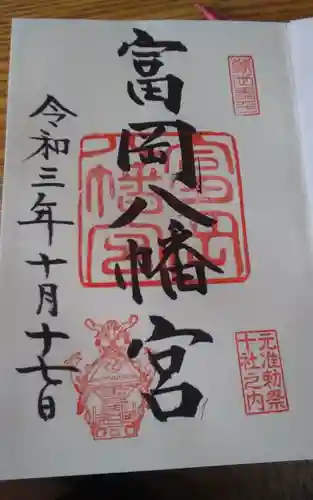 富岡八幡宮
令和三年十月十七日
富岡八幡宮
元准勅祭
十社之内